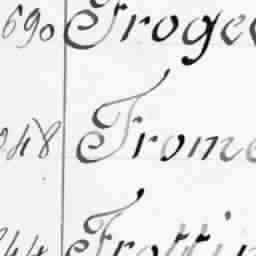 690 Froge
48 Frome
44 Frottin